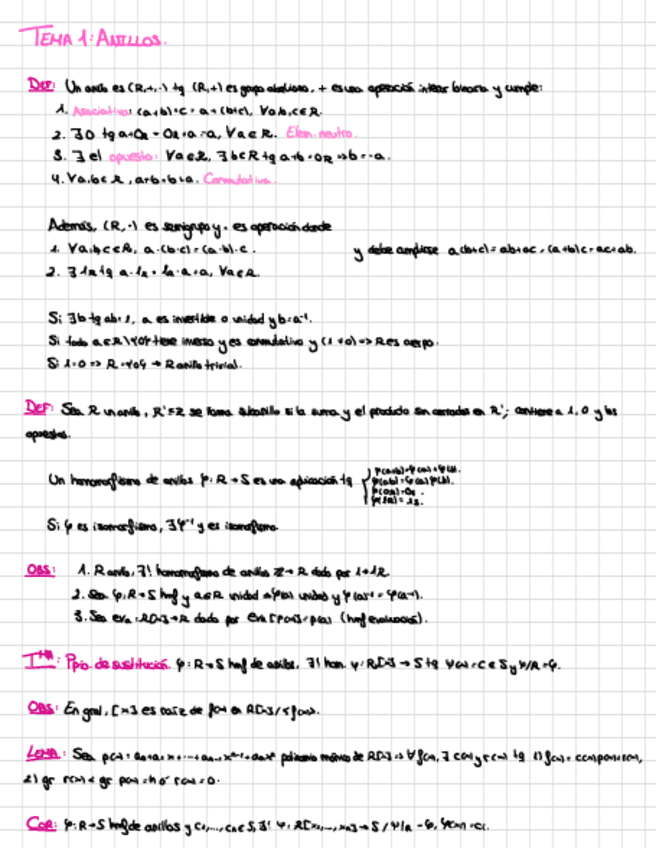 TEMA 1: ANILLOS.
DEF: Un anillo es (R,+,·) tq (R,+) es grupo abeliano, + es una operación interna binaria y cumple:
1. Asociativa: (a+b)+c = a+(b+c), ∀a,b,c∈R.
2. ∃0 tq a+0R = 0R+a = a, ∀a∈R. Elem. neutro.
3. ∃ el opuesto: ∀a∈R, ∃b∈R tq a+b=0R ⇒ b=-a.
4. ∀a,b∈R, a+b=b+a. Conmutativa.
Además, (R,·) es semigrupo y · es operación donde
1. ∀a,b,c∈R, a·(b·c)=(a·b)·c. y debe cumplirse a(b+c)=ab+ac, (a+b)c=ac+ab.
2. ∃1R tq a·1R = 1R·a=a, ∀a∈R.
Si ∃b tq ab=1, a es invertible o unidad y b=a⁻¹.
Si todo a∈R\{0} tiene inverso y es conmutativo y (1≠0) => R es cuerpo.
Si 1=0 => R={0} → R anillo trivial.
DEF: Sea R un anillo, R' R se llama subanillo si la suma y el producto son cerrados en R'; contiene a 1, 0 y los
opuestos.
Un homomorfismo de anillos φ: R→S es una aplicación tq { φ(a+b)=φ(a)+φ(b). φ(ab)=φ(a)φ(b). φ(0R)=0s. φ(1R)=1s.
Si φ es isomorfismo, ∃φ⁻¹ y es isomorfismo.
OBS: 1. R anillo, ∃! homomorfismo de anillos Z→R dado por 1→1R.
2. Sea φ: R→S hmf y a∈R unidad ⇒ φ(a) unidad y φ(a)⁻¹ = φ(a⁻¹).
3. Sea eva: R[x]→R dado por eva[p(x)]=p(a) (hmf evaluación).
TMA: Ppio. de sustitución. φ: R→S hmf de anillos, ∃! hom. ψ: R[x]→S tq ψ(x)=c∈S y ψ/R=φ.
OBS: En gral, [x] es raíz de f(x) en R[x]/<f(x)>.
LEMA: Sea p(x)= a0+a1x+...+an-1xⁿ⁻¹+anxⁿ polinomio mónico de R[x] => ∀f(x), ∃ c(x) y r(x) tq 1) f(x)=c(x)p(x)+r(x),
2) gr r(x) < gr p(x) = n ó r(x)=0.
COR: φ: R→S hmf de anillos y c1,...,cn∈S, ∃! ψ: R[x1,...,xn]→S / ψ/R = φ, ψ(xi)=ci.